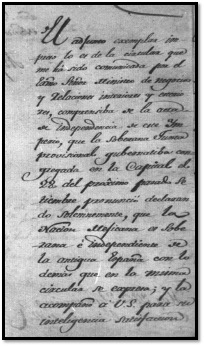 El adjunto exemplar im
preso es de la circular que
me ha sido comunicada por el
Exmo Señor Ministro de negocios
y Relaciones interiores y exterio
res, comprensiba de la acta
de Independencia de este Ym
perio, que la Soberana Junta
provisional gubernatiba con
gregada en la Capital el
28 del próximo pasado Se
tiembre pronunció declaran
do Solemnemente, que la
Nacion Mejicana es Sobe
rana é independiente de
la antigua España con lo
demas que en la misma
circular se expresa; y la
acompaño á V.S. para su
inteligencia satisfaccion